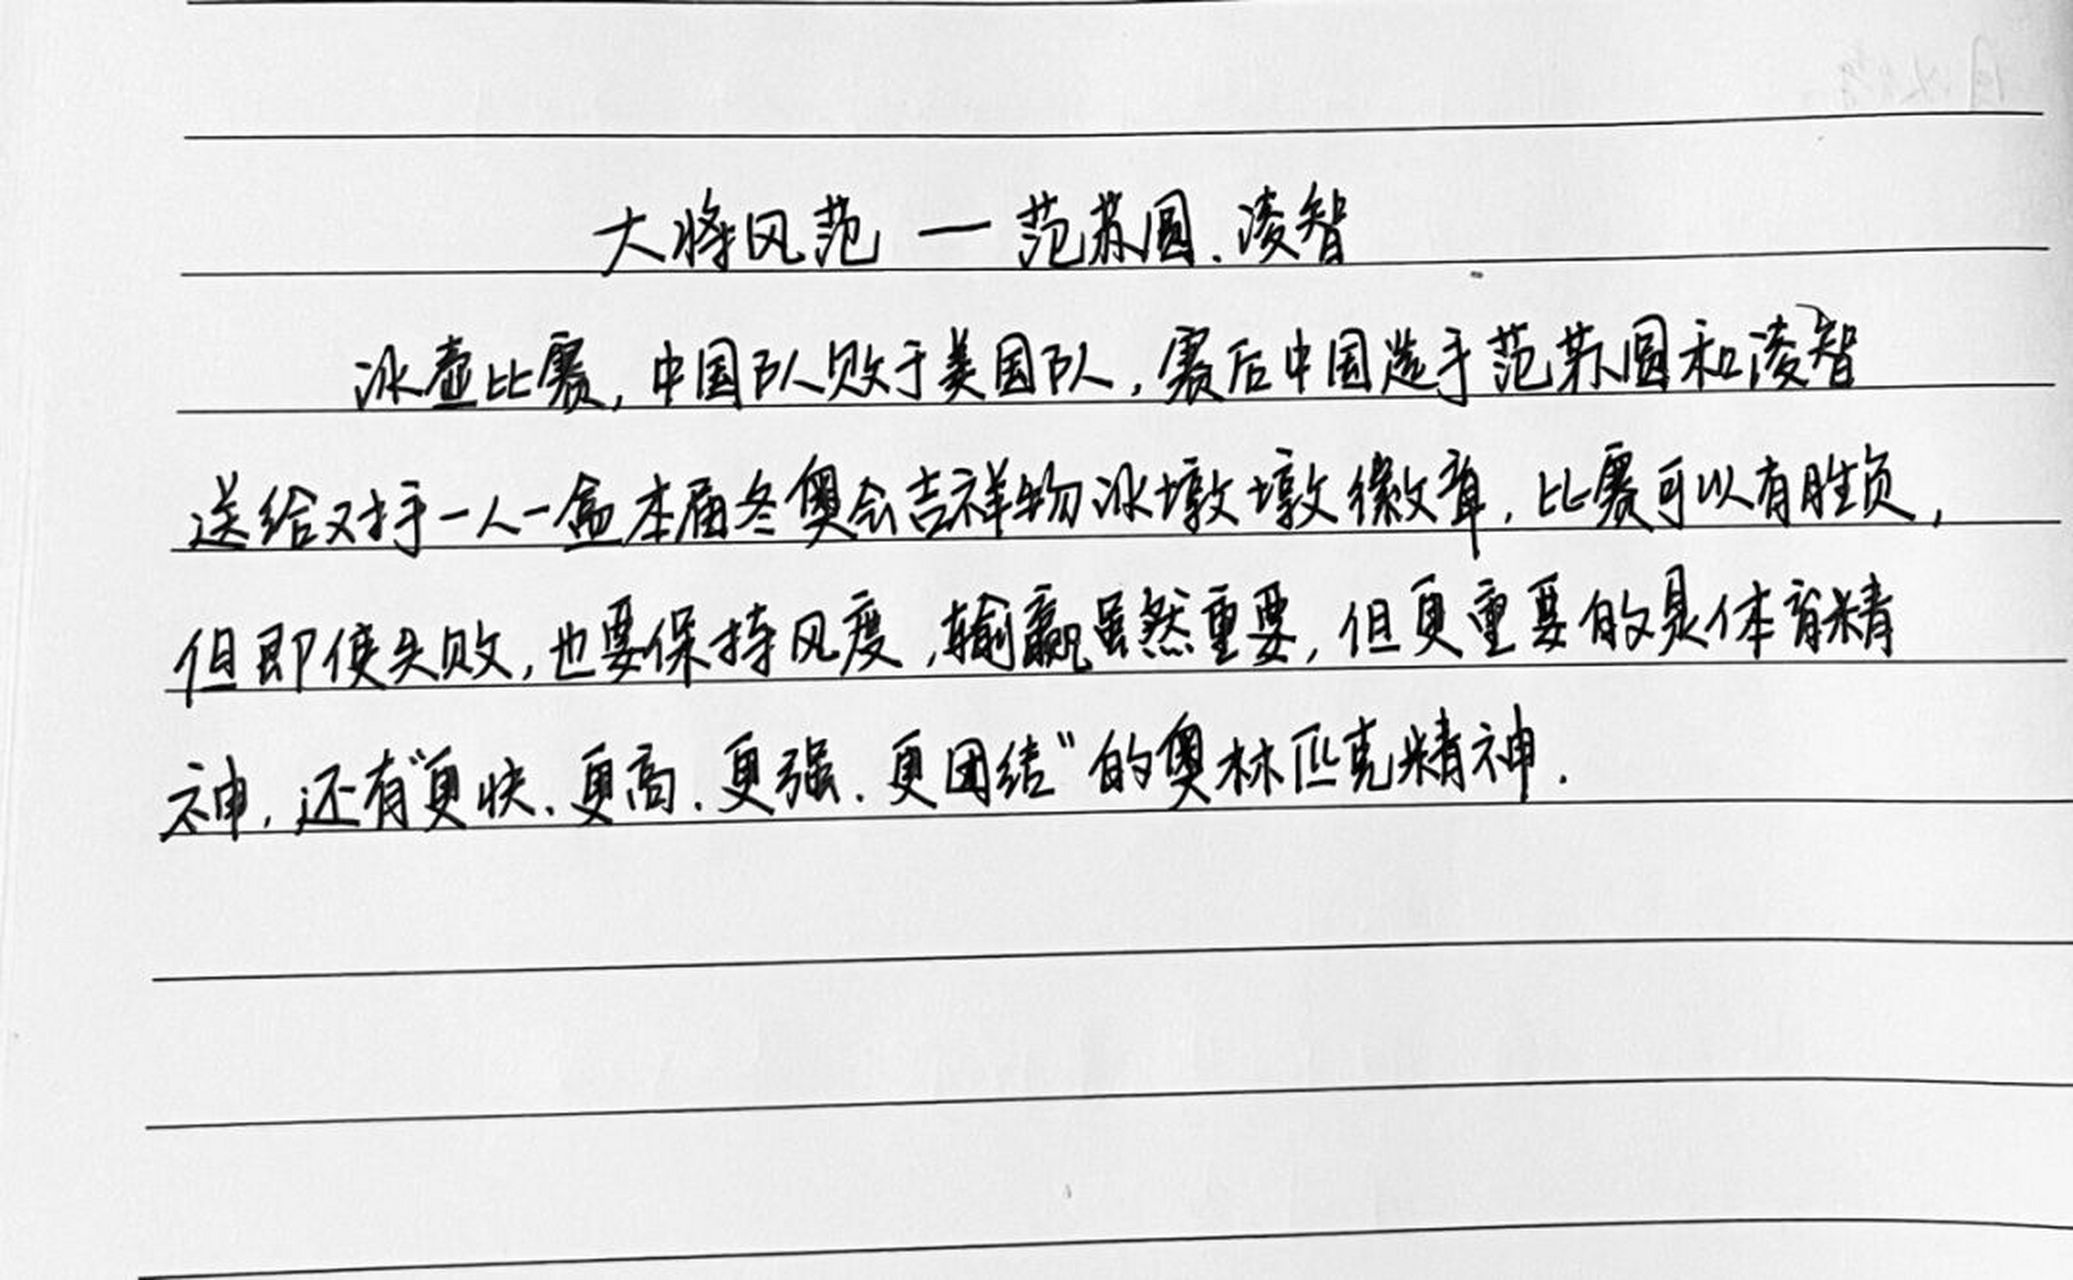 大将风范 — 范苏圆.凌智
冰壶比赛,中国队败于美国队,赛后中国选手范苏圆和凌智
送给对手一人一盒本届冬奥会吉祥物冰墩墩徽章.比赛可以有胜负,
但即使失败,也要保持风度,输赢虽然重要,但更重要的是体育精
神.还有“更快.更高.更强.更团结”的奥林匹克精神.